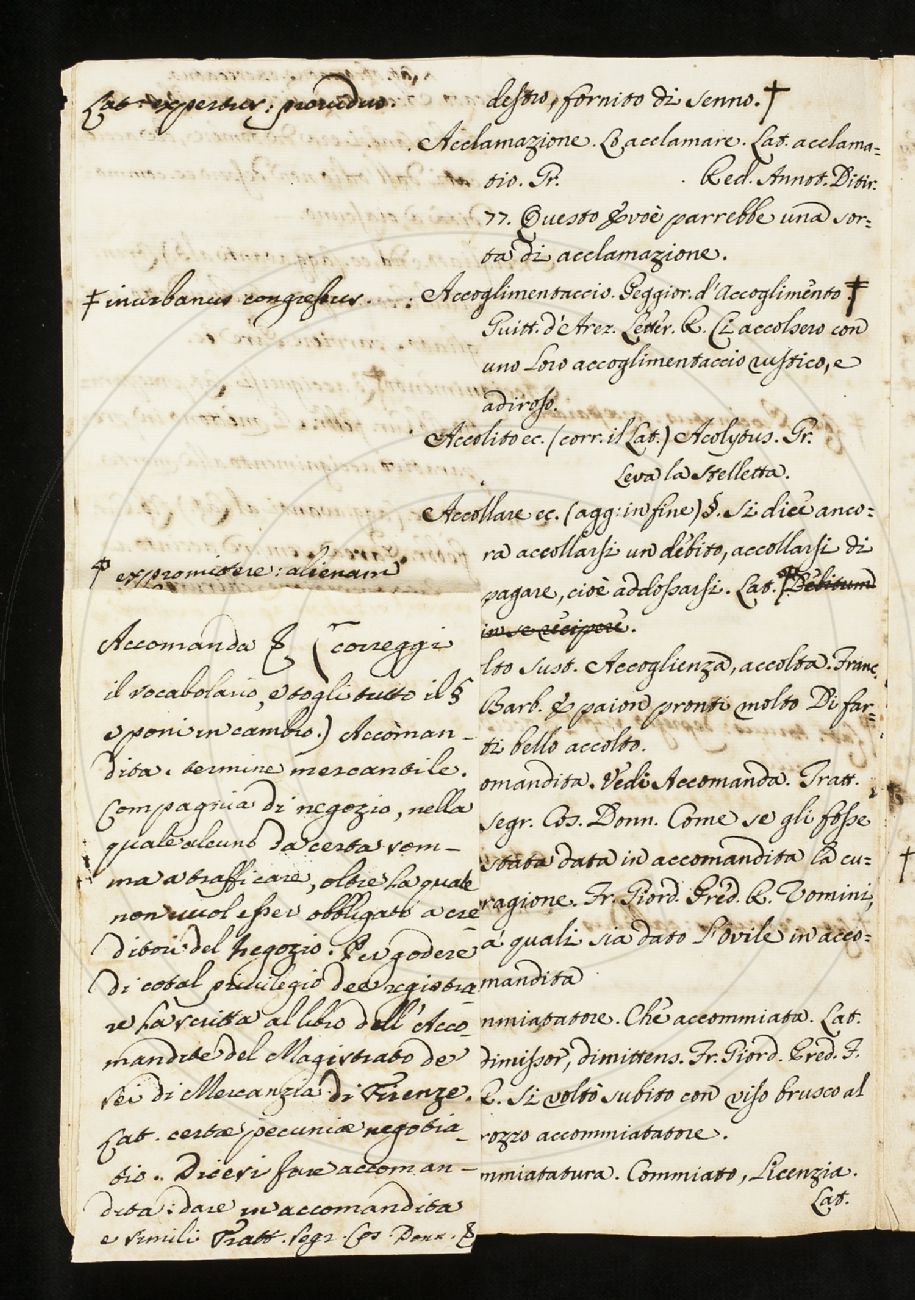 Lat. expertus: providus.
‡ inurbanus congressus.
‡ expromittere: alienam
Accomanda § (correggi
il vocabolario, e togli tutto il §
e poni in cambio.) Accoman-
dita. termine mercantile.
Compagnia di negozio, nella
quale alcuno da certa som-
ma a trafficare, oltre la quale
non vuol esser obbligato a cre
ditori del Negozio. Per godere
di cotal privilegio dee registra-
re la scritta al libro dell'Acco-
mandite del Magistrato de
sei di Mercanzia di Firenze.
Lat. certæ pecuniæ negotia-
tio. Dicesi fare accoman-
dita: dare in accomandita
e simili Tratt. segr. Cos Donn.
destro, fornito di senno. †
Acclamazione. Lo acclamare. Lat. acclama=
tio. Gr. Red. Annot. Ditir.
77. Questo Evoè parrebbe una sor=
ta di acclamazione.
Accoglimentaccio. Peggior. d'Accoglimento. ‡
Guitt. d'Arez. Letter. R. Ci accolsero con
uno loro accoglimentaccio rustico, e
adiroso.
Accolito ec. (corr. il Lat.) Acolytus. Gr.
Leva la Stelletta.
Accollare ec. (agg: in fine) §. Si dice anco=
ra accollarsi un debito, accollarsi di
pagare, cioè addossarsi. Lat. ‡ Debitum
in se recipere.
lto sust. Accoglienza, accolta. Franc.
Barb. E paion pronti molto Di far=
ti bello accolto.
omandita. Vedi Accomanda. Tratt.
segr. Cos. Donn. Come se gli fosse
stata data in accomandita la cu=
ragione. Fr. Giord. Pred. R. Uomini,
a' quali sia dato l'ovile in acco=
mandita
mmiatatore. Che accommiata. Lat.
dimissor, dimittens. Fr. Giord. Pred.
R. Si voltò subito con viso brusco al
rozzo accommiatatore.
mmiatatura. Commiato, Licenzia.
Lat.